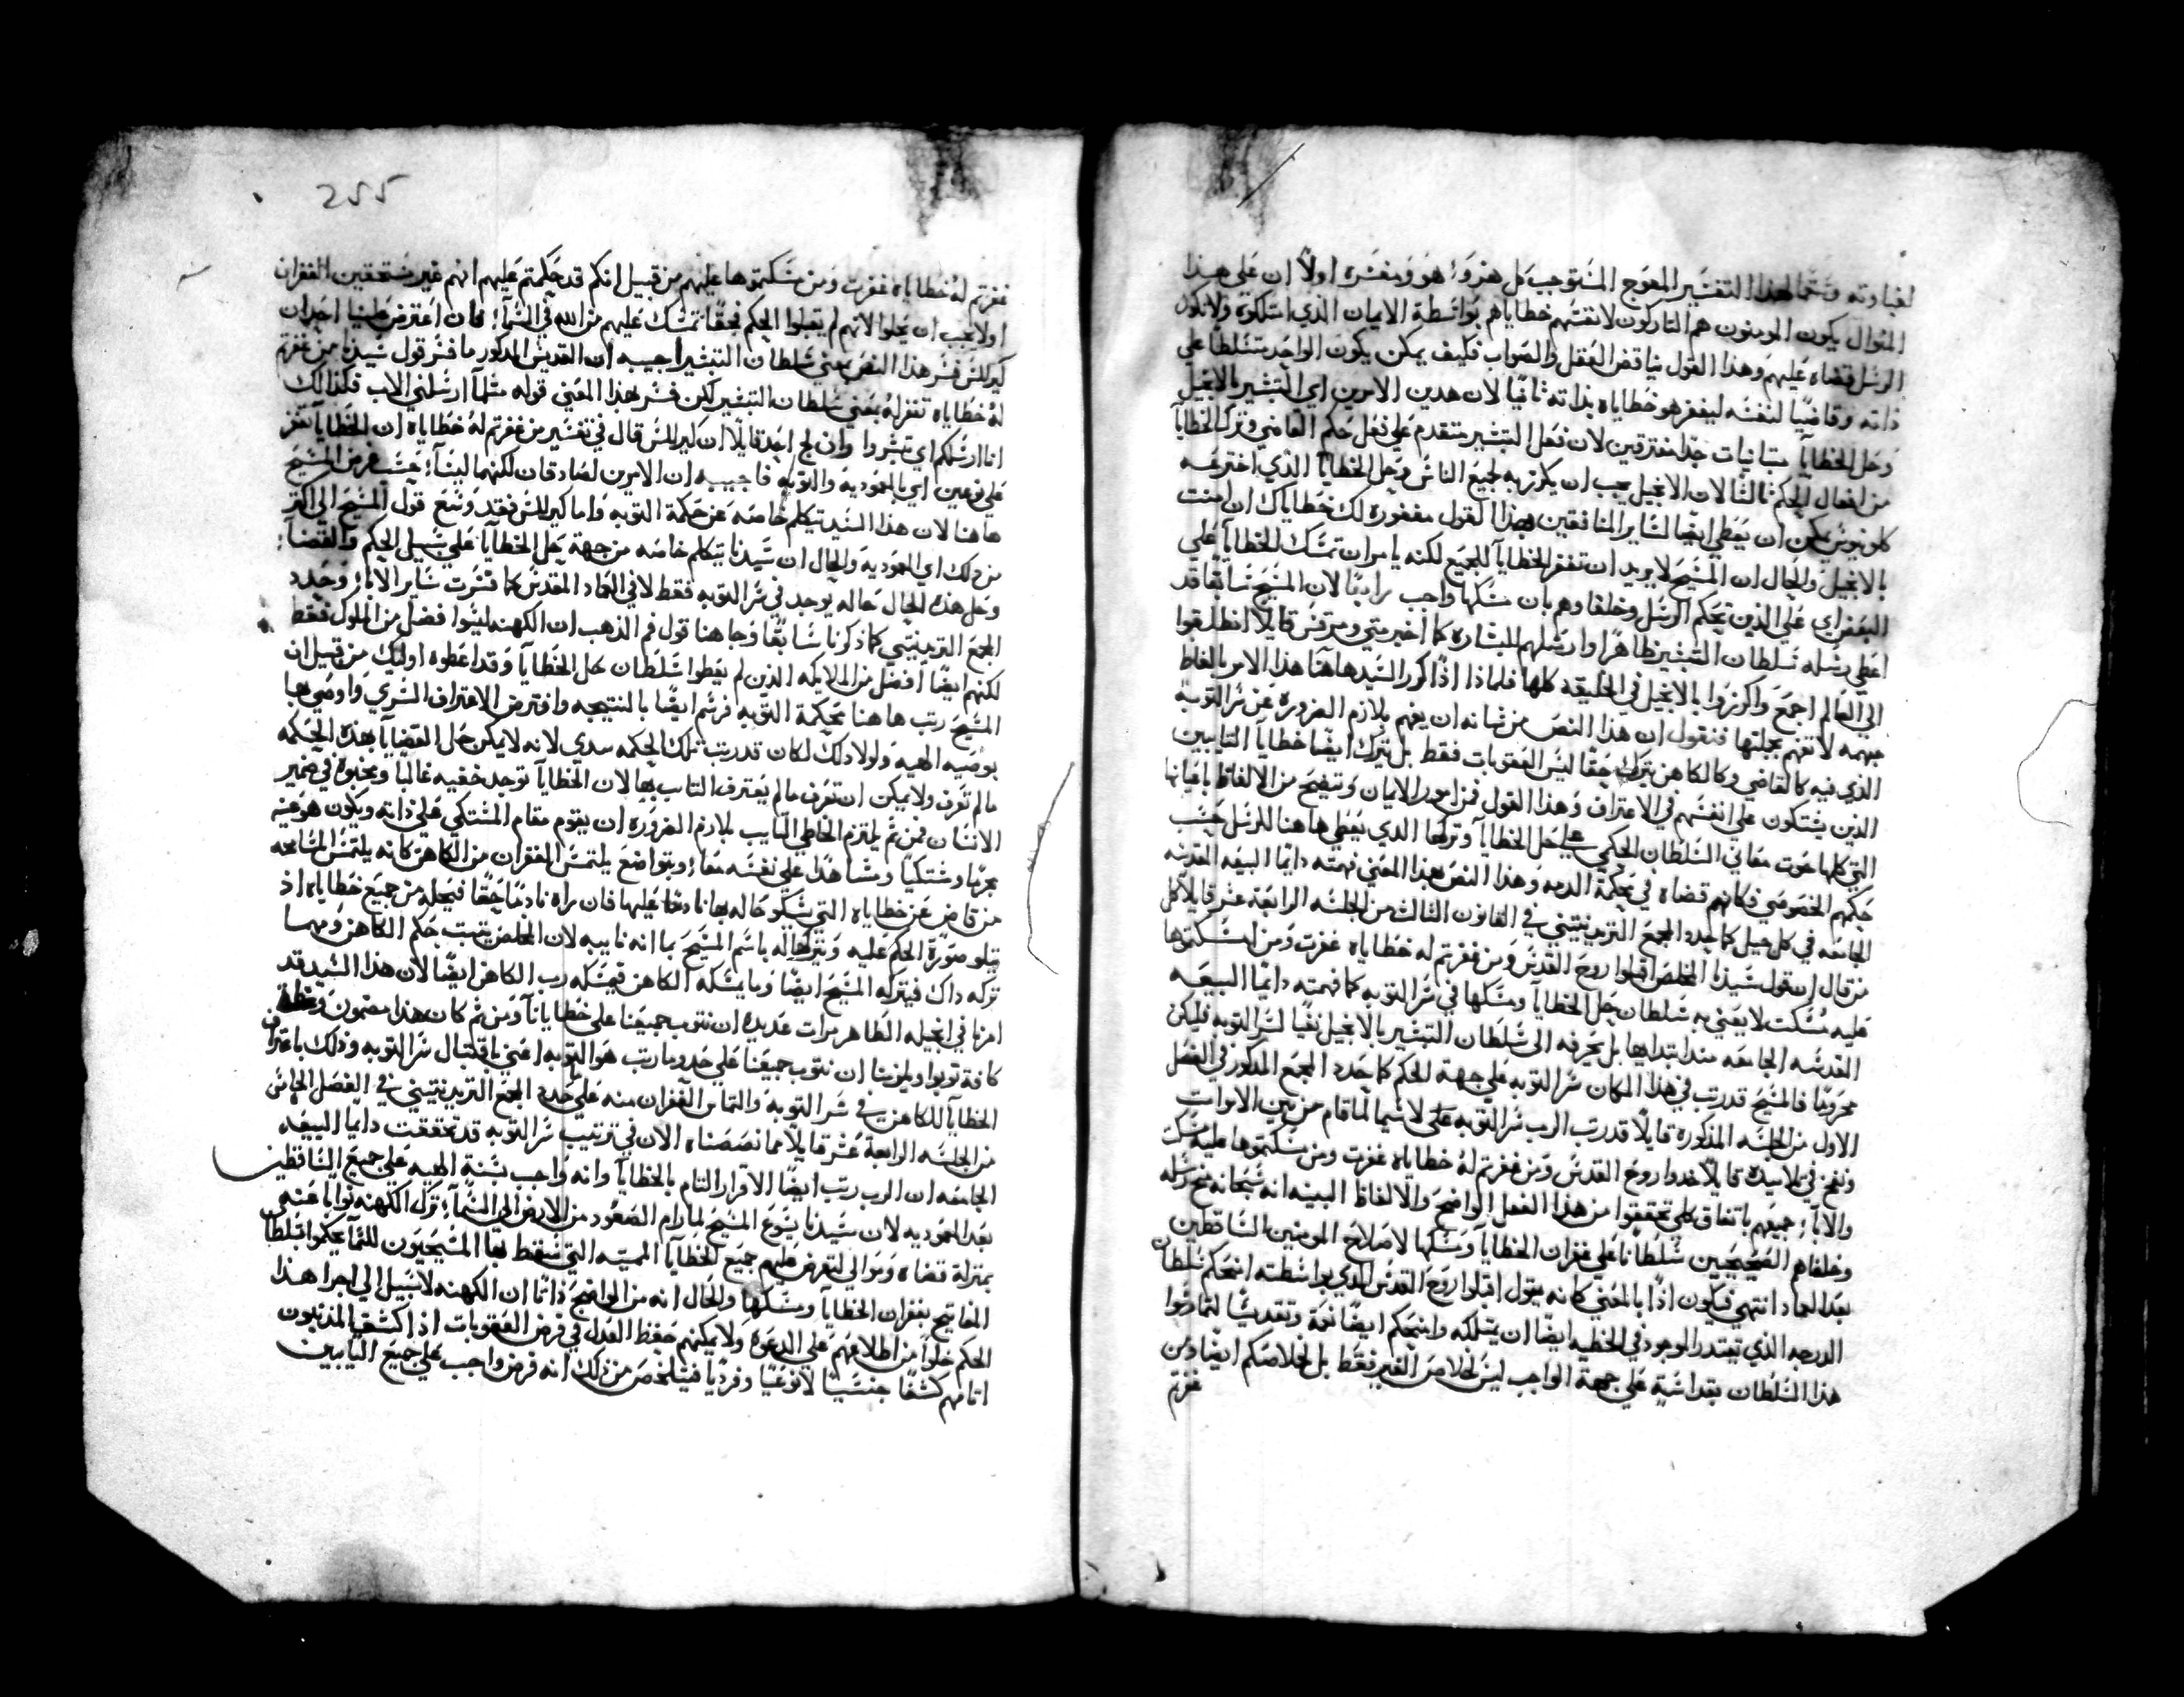 لغباوته وشتمًا لهذا التفسير المعوج المستوجب كل هزؤ؛ هو ومفسره اولاً ان علي هذا
المنوال يكون المومنون هم التاركون لانفسهم خطاياهم بواسطة الايمان الذي امتلكوة ولا تكون
الرسل قضاه عليهم وهذا القول يناقض العقل والصواب فكيف يمكن يكون الواحد متسلطًا علي
ذاته وقاضيًا لنفسه ليغفر هو خطاياه بذاته ثانيًا لان هدين الامرين اي التبشير بالانجيل
وحل الخطايآ متباينات جدًا مفترقين لان فعل التبشير متقدم علي فعل حكم القاضي وترك الخطايآ
من افعال الحكم ثالثًا لان الانجيل يجب ان يكرز به لجميع الناس وحل الخطايآ الذي اخترعه
كلوينوس يمكن ان يعطي ايضًا لساير المنافقين بهذا القول مغفوره لك خطاياك ان امنت
بالانجيل والحال ان المسيح لا يريد ان تغفر الخطايآ للجميع لكنه يامر ان تمسك الخطايآ علي
البعض اي علي الذين تحكم الرسل وخلفاوهم بان مسكها واجب رابعًا لان المسيح سابقًا قد
اعطي رسله سلطان التبشير ظاهرًا وارسلهم للبشاره كما اخبر متي ومرقس قايلاً انطلقوا
الي العالم اجمع واكرزوا بالانجيل في الخليقه كلها فلماذا اذًا كرر السيد هاهنا هذا الامر بالفاظ
مبهمه لا تفهم بجملتها فنقول ان هذا النص من شانه ان يفهم بلازم الضروره عن سر التوبه
الذي فيه كالقاضي وكالكاهن يترك حقًا ليس العقوبات فقط بل يترك ايضًا خطايآ التايبين
الذين يشتكون علي انفسهم في الاعتراف وهذا القول فمن امور الايمان وتتضح من الالفاظ باعيانها
التي كلها حوت معاني السلطان الحكمي علي حل الخطايآ وتركها الدي يعطي هاهنا للرسل حسب
حكمهم الخصوصي فكانهم قضاه في محكمة الدمه وهذا النص بهذا المعني فهمته دايمًا البيعه المقدسه
الجامعه في كل جيل كما حدد المجمع التريدنتيني في القانون الثالث من الجلسه الرابعة عشر قايلاً كل
من قال ان قول سيدنا المخلص اقبلوا روح القدس ومن غفرتم له خطاياه غفرت ومن امسكتموها
عليه مسكت لا يعني به سلطان حل الخطايآ ومسكها في سر التوبه كما فهمته دايمًا البيعه
القدسه الجامعه مند ابتدايها بل يحرفه الي سلطان التبشير بالانجيل نفيًا لسر التوبه فليكن
محرومًا فالمسيح قد رتب في هذا المكان سر التوبه علي جهة الحكم كما حدد المجمع المدكور في الفصل
الاول من الجلسه المذكوره قايلاً قد رتب الرب سر التوبه علي لاسيما لما قام من بين الاموات
ونفخ في تلاميده قايلاً خدوا روح القدس ومن غفرتم لهُ خطاياه غفرت ومن مسكتموها عليه مسكت
والابآ؛ جميعهم باتفاق كلي تحققوا من هذا الفعل الواضح والالفاظ البينه انه سبحانه منح رسله
وخلفاهم الصحيحيين سلطانًا علي غفران الخطايآ ومسكها لاصلاح المومنين الساقطين
بعد العماد انتهي فيكون اذًا بالمعني كانه يقول اقبلوا روح القدس الدي بواسطته امنحكم سلطان
الدرجه الذي يقتدر الموجود في الخطيه ايضًا ان يمتلكه وامنحكم ايضًا نعمة وتقديسًا لتمارسوا
هذا السلطان بقداسةٍ علي جهة الواجب ليس لخلاص الغير فقط بل لخلاصكم ايضًا ومن
غفرتم
255
غفرتم لهُ خطاياه غفرت ومن مسكتموها عليهم من قبيل انكم قد حكمتم عليهم انهم غير مستحقين الغفران
او لا يجب ان يحلوا لانهم لم يقبلوا الحكم فحقًا تمسك عليهم من الله في السمآ؛ فان اعترض علينا احد ان
كيرللس فسر هذا النص بمعني سلطان التبشير اجيبه ان القديس المدكور ما فسر قول سيدنا من غفرتم
لهُ خطاياه تغفر لهُ بمعني سلطان التبشير لكن فسر بهدا المعني قوله مثلمآ ارسلني الاب فكذلك
انا ارسلكم اي تبشروا وان لج احد قايلاً ان كيرللس قال في تفسير من غفرتم لهُ خطاياه ان الخطايآ تغفر
علي نوعين اي بالمعموديه والتوبه فاجيبه ان الامرين لصادقان لكنهما ليسآ؛ حسب غرض المسيح
هاهنا لان هذا السيد تيكلم خاصه عن حكمة التوبه واما كيرللس فقد وسع قول المسيح الي اكثر
من دلك اي المعوديه والحال ان سيدنا يتكلم خاصه من جهة حل الخطايآ علي سبيل الحكم والقضآ؛
وحل هذه الحال حاله يوجد في سر التوبه فقط لا في العماد المقدس كما فسرت ساير الابآ؛ وحدد
المجمع التريدنتيني كما ذكرنا سابقًا وجا هنا قول فم الذهب ان الكهنه ليسوا افضل من الملوك فقط
لكنهم ايضًا افضل من الملايكه الذين لم يعطوا سلطان حل الخطايآ وقد اعطوه اوليك من قبيل ان
المسيح رتب هاهنا محكمة التوبه فرسم ايضًا بالنتيجه وافترض الاعتراف السري واوصي بها
بوصيه الهيه ولولا دلك لكان قد رتب تلك الحكمه سدي لانه لا يمكن حل القضايآ بهذه الحكمه
مالم تعرف ولا يمكن ان تعرف مالم يعترف التاب بها لان الخطايآ توجد خفيه غالبًا ومخبوة في ضمير
الانسان فمن ثم يلتزم الخاطي التايب بلازم الضروره ان يقوم مقام المشتكي علي ذاته ويكون هو عينه
مجرمًا ومشتكيًا وشاهدًا علي نفسه معًا؛ وبتواضع يلتمس الغفران من الكاهن كانه يلتمس المسامحه
من قاضٍ عن خطاياه التي يشكو حاله بها نادمًا عليها فان راه نادمًا حقًا فيحله من جميع خطاياه اذ
يتلو صورة الحكم عليه ويتركها له باسم المسيح بما انه نايبه لان المخلص يثبت حكم الكاهن ومهما
تركه داك فيتركه المسيح ايضًا وما يمسكه الكاهن فيمسكه رب الكاهن ايضًا لان هذا السيد قد
امرنا في انجيله الطاهر مرات عديده ان نتوب جميعنا علي خطايانآ ومن ثم كان هدا مضمون وعظه
كافة توبوا ويلزمنا ان نتوب جميعنا علي حدو ما رتب هو التوبه اعني باقتبال سر التوبه وذلك باعتراف
الخطايآ للكاهن في سر التوبه والتماس الغفران منه علي حدو المجمع التريدنتيني في الفصل الخامس
من الجلسه الرابعة عشر قايلاً مما نصصناه الان في ترتيب سر التوبه قد تحققت دايما البيعه
الجامعه ان الرب رتب ايضًا الاقرار التام بالخطايآ وانه واجب بسنة الهيه علي جميع الساقطين
بعد المعموديه لان سيدنا يسوع المسيح لما رام الصعود من الارض الي السمآ؛ ترك الكهنه نوابًا عنه
بمنزلة قضاه وموالي لتعرض عليهم جميع الخطايآ المميته التي يسقط بها المسيحيون لكيما يحكموا بسلطان
المفاتيح بغفران الخطايآ ومسكها والحال انه من الواضح ذاتًا ان الكهنه لا سبيل الي اجرا هذا
الحكم خلوًا من اطلاعهم علي الدعوه ولا يمكنهم حفظ العدل في فرض العقوبات اذا كشف المذنبون
اثامهم كشفًا جنسيًا لا نوعيًا وفرديًا فيتلخص من ذلك انه فرض واجب علي جميع التايبين